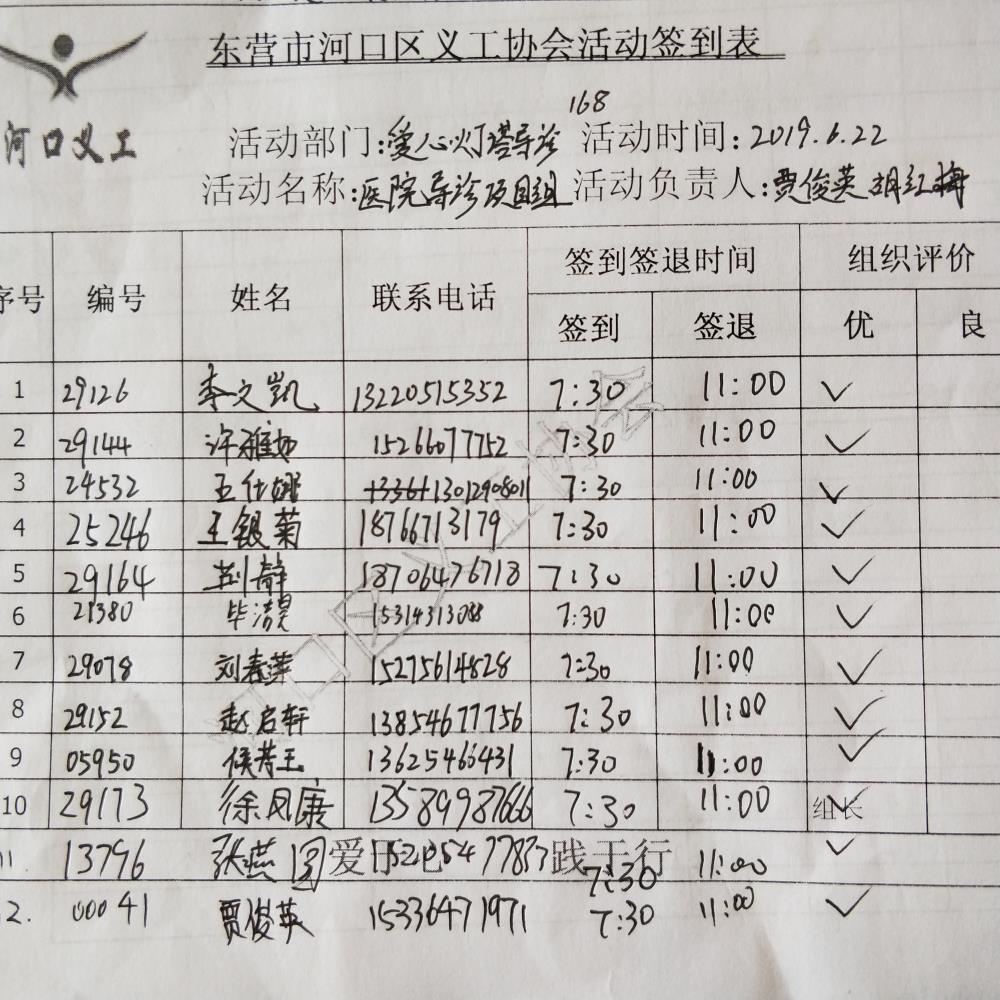 东营市河口区义工协会活动签到表
河口义工
168
活动部门:爱心灯塔导诊 活动时间:2019.6.22
活动名称:医院导诊项目组 活动负责人:贾俊英 胡红梅
序号 编号 姓名 联系电话 签到签退时间 组织评价
签到 签退 优 良
1 29126 李文凯 13220515352 7:30 11:00 ✓
2 29144 许雅如 15266077752 7:30 11:00 ✓
3 24532 王仕娜 7:30 11:00 ✓
4 25246 王银菊 18766713179 7:30 11:00 ✓
5 29164 荆静 18706476718 7:30 11:00 ✓
6 21380 毕淏 7:30 11:00 ✓
7 29078 刘春萍 15275614828 7:30 11:00 ✓
8 29152 赵启轩 13854677756 7:30 11:00 ✓
9 05950 侯芳玉 13625466431 7:30 11:00 ✓
10 29173 徐凤康 13589987666 7:30 11:00 组长 ✓
11. 13796 张燕 7:30 11:00 ✓
爱 践于行
12. 00041 贾俊英 15336471971 7:30 11:00 ✓
河口区义工协会